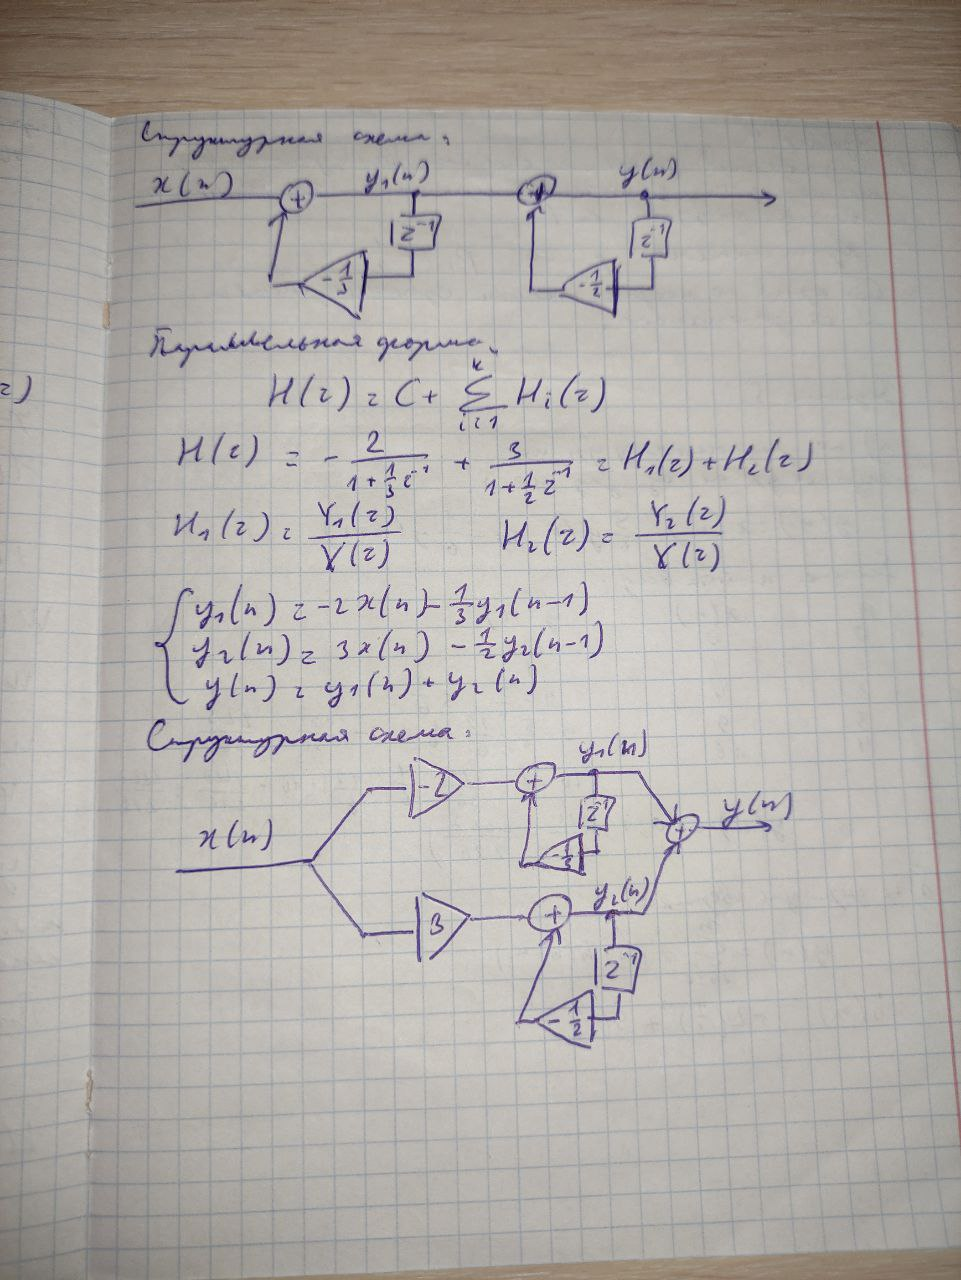 Структурная схема:
x(n) + y₁(n) + y(n)
z⁻¹ z⁻¹
-1/3 -1/2
Параллельная форма:
z)
H(z) = C + Σ_{i=1}^{k} H_i(z)
H(z) = - 2/(1+1/3 z⁻¹) + 3/(1+1/2 z⁻¹) = H₁(z) + H₂(z)
H₁(z) = Y₁(z)/X(z) H₂(z) = Y₂(z)/X(z)
y₁(n) = -2x(n) - 1/3 y₁(n-1)
y₂(n) = 3x(n) - 1/2 y₂(n-1)
y(n) = y₁(n) + y₂(n)
Структурная схема:
y₁(n)
-2 +
x(n) z⁻¹ + y(n)
-1/3
y₂(n)
3 +
z⁻¹
-1/2